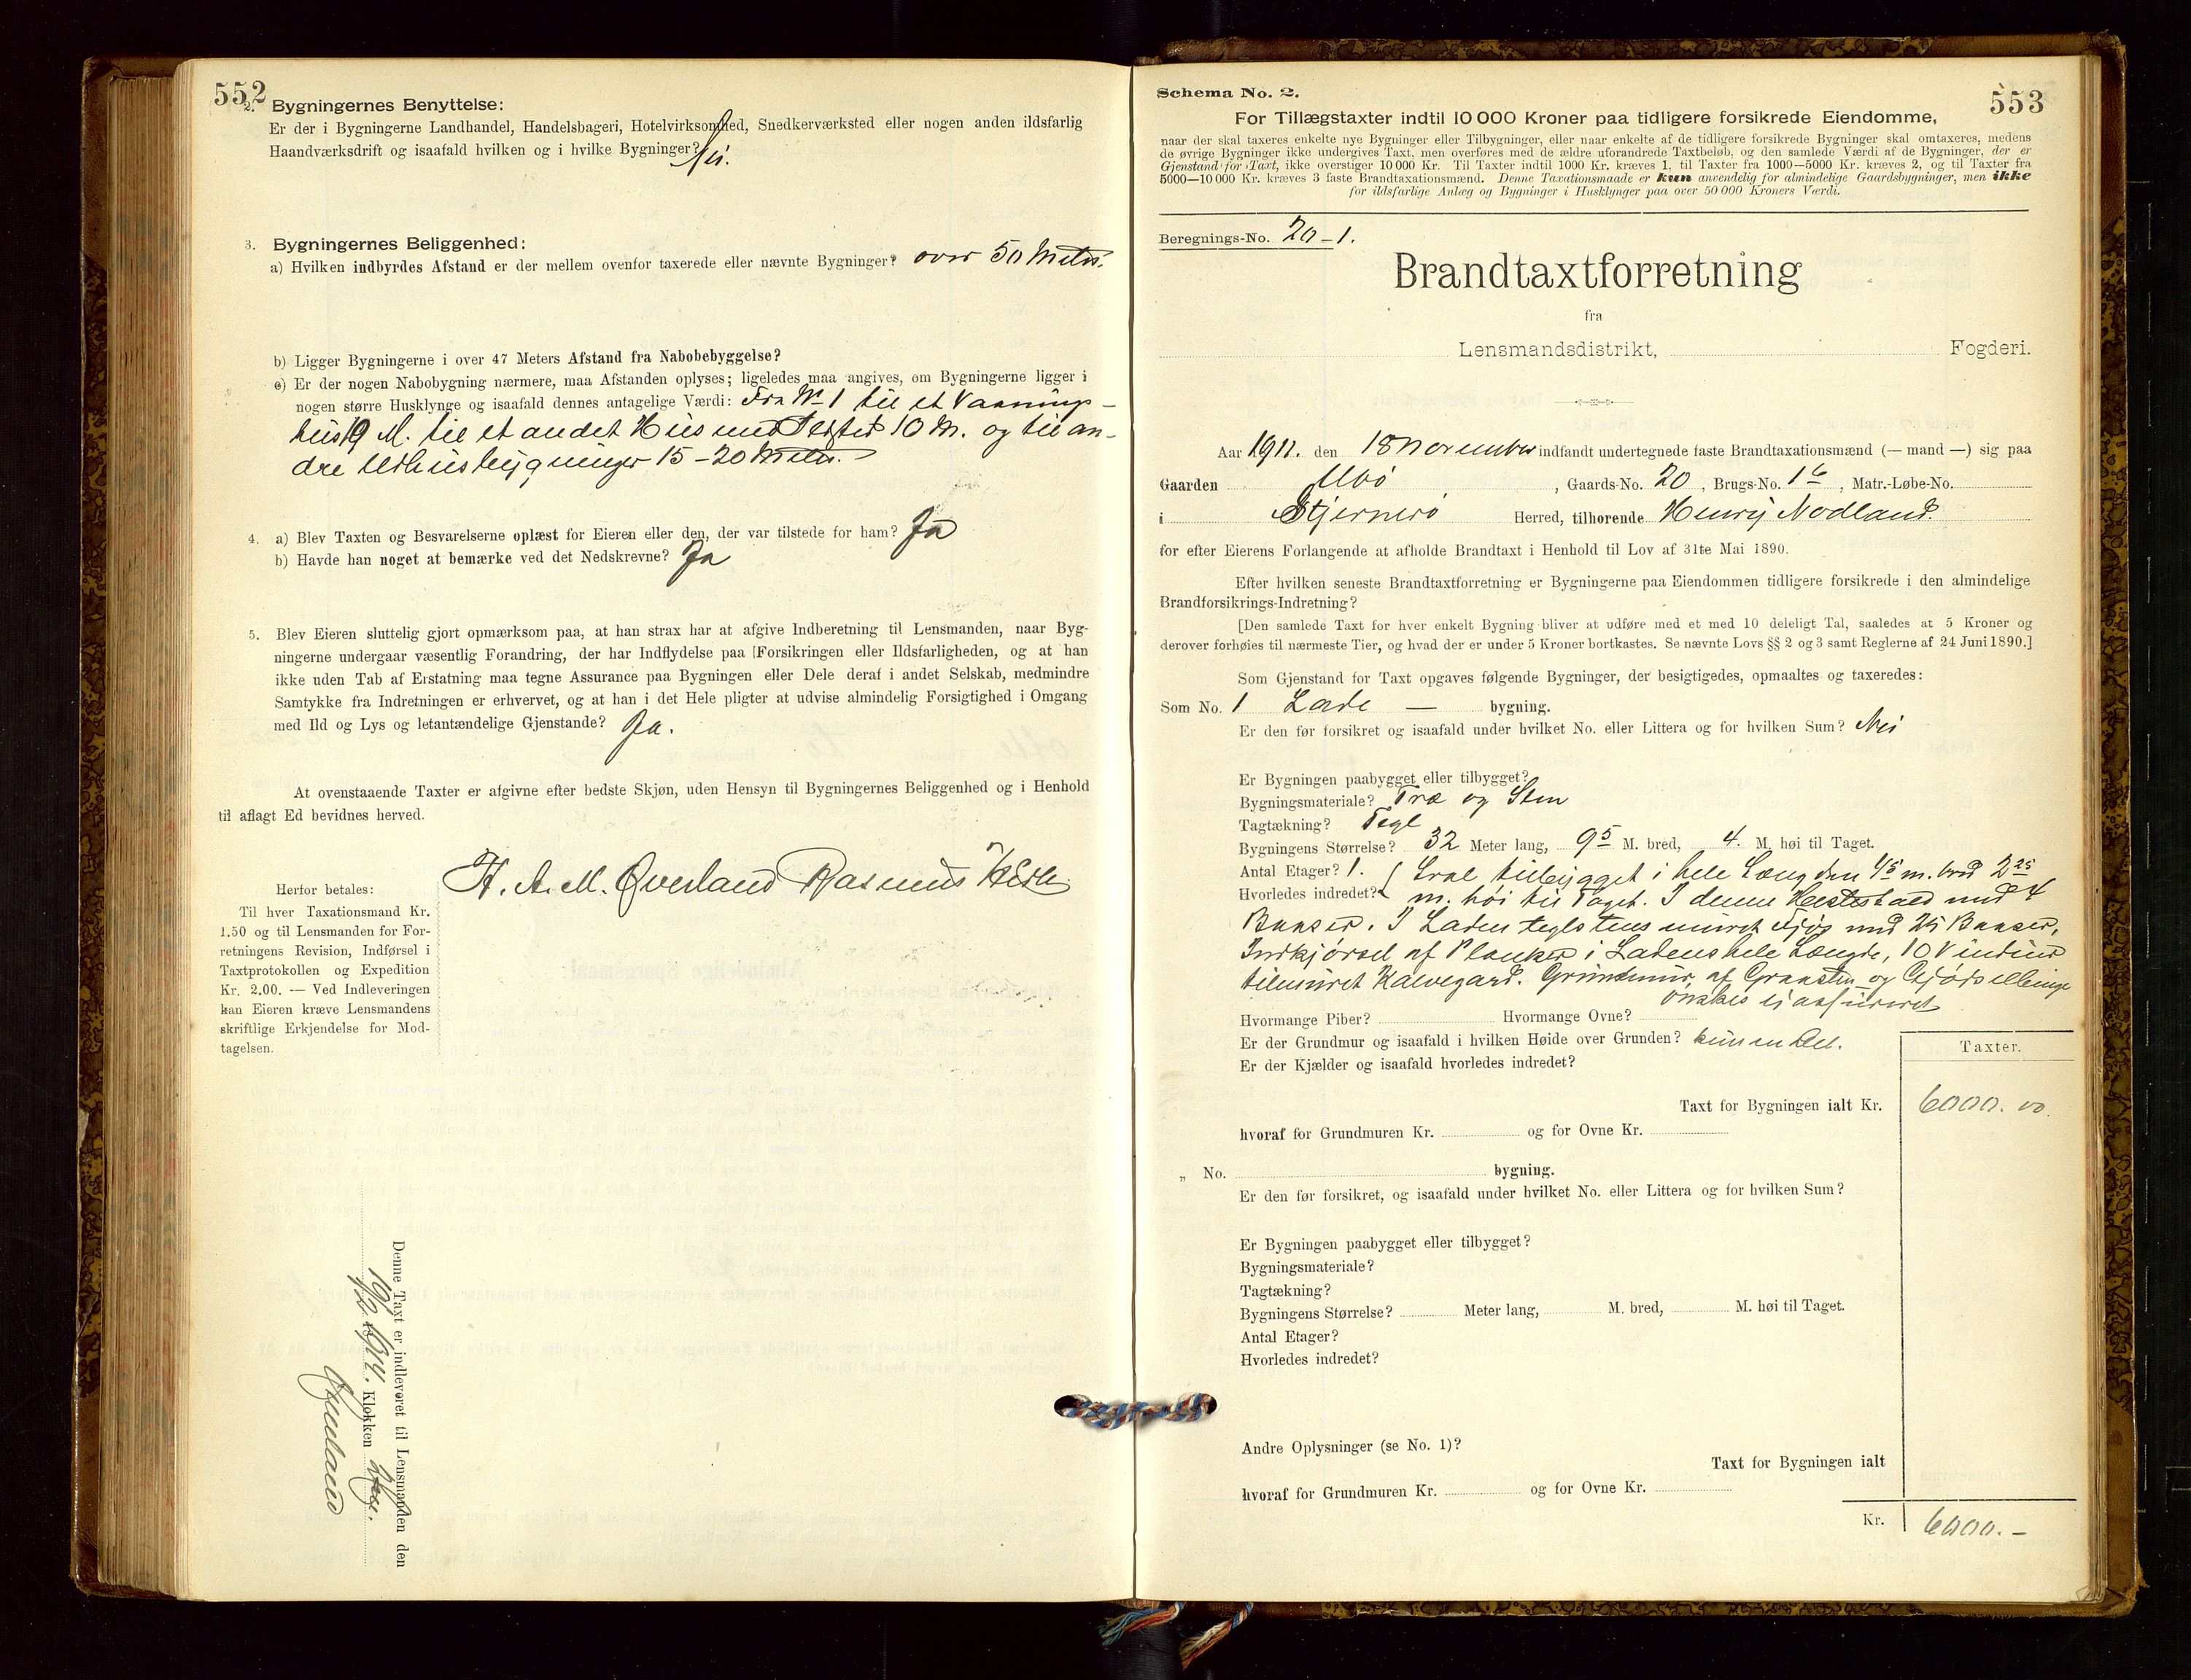 552
2. Bygningernes Benyttelse:
Er der i Bygningerne Landhandel, Handelsbageri, Hotelvirksomhed, Snedkerværksted eller nogen anden ildsfarlig
Haandværksdrift og isaafald hvilken og i hvilke Bygninger? Nei.
3. Bygningernes Beliggenhed:
a) Hvilken indbyrdes Afstand er der mellem ovenfor taxerede eller nævnte Bygninger? over 50 Meter.
b) Ligger Bygningerne i over 47 Meters Afstand fra Nabobebyggelse?
c) Er der nogen Nabobygning nærmere, maa Afstanden oplyses; ligeledes maa angives, om Bygningerne ligger i
nogen større Husklynge og isaafald dennes antagelige Værdi: Fra No 1 til et Vaanings-
hus 19 M. til et andet Hus med 10 M. og til an-
dre Udhusbygninger 15-20 Meter.
4. a) Blev Taxten og Besvarelserne oplæst for Eieren eller den, der var tilstede for ham? Ja
b) Havde han noget at bemærke ved det Nedskrevne? Ja
5. Blev Eieren sluttelig gjort opmærksom paa, at han strax har at afgive Indberetning til Lensmanden, naar Byg-
ningerne undergaar væsentlig Forandring, der har Indflydelse paa Forsikringen eller Ildsfarligheden, og at han
ikke uden Tab af Erstatning maa tegne Assurance paa Bygningen eller Dele deraf i andet Selskab, medmindre
Samtykke fra Indretningen er erhvervet, og at han i det Hele pligter at udvise almindelig Forsigtighed i Omgang
med Ild og Lys og letantændelige Gjenstande? Ja.
At ovenstaaende Taxter er afgivne efter bedste Skjøn, uden Hensyn til Bygningernes Beliggenhed og i Henhold
til aflagt Ed bevidnes herved.
H. A. M. Øverland Rasmus
Herfor betales:
Til hver Taxationsmand Kr.
1.50 og til Lensmanden for For-
retningens Revision, Indførsel i
Taxtprotokollen og Expedition
Kr. 2.00. — Ved Indleveringen
kan Eieren kræve Lensmandens
skriftlige Erkjendelse for Mod-
tagelsen.
Denne Taxt er indleveret til Lensmanden den
19/2 1912. Klokken
Øverland
553
Schema No. 2.
For Tillægstaxter indtil 10 000 Kroner paa tidligere forsikrede Eiendomme,
naar der skal taxeres enkelte nye Bygninger eller Tilbygninger, eller naar enkelte af de tidligere forsikrede Bygninger skal omtaxeres, medens
de øvrige Bygninger ikke undergives Taxt, men overføres med de ældre uforandrede Taxtbeløb, og den samlede Værdi af de Bygninger, der er
Gjenstand for Taxt, ikke overstiger 10 000 Kr. Til Taxter indtil 1000 Kr. kræves 1, til Taxter fra 1000—5000 Kr. kræves 2, og til Taxter fra
5000—10 000 Kr. kræves 3 faste Brandtaxationsmænd. Denne Taxationsmaade er kun anvendelig for almindelige Gaardsbygninger, men ikke
for ildsfarlige Anlæg og Bygninger i Husklynger paa over 50 000 Kroners Værdi.
Beregnings-No. 20-1.
Brandtaxtforretning
fra
Lensmandsdistrikt, Fogderi.
Aar 1911. den 18 November indfandt undertegnede faste Brandtaxationsmænd (— mand —) sig paa
Gaarden Ubø, Gaards-No. 20, Brugs-No. 1, Matr.-Løbe-No.
i Stjernerø Herred, tilhørende Henrij Nodland.
for efter Eierens Forlangende at afholde Brandtaxt i Henhold til Lov af 31te Mai 1890.
Efter hvilken seneste Brandtaxtforretning er Bygningerne paa Eiendommen tidligere forsikrede i den almindelige
Brandforsikrings-Indretning?
[Den samlede Taxt for hver enkelt Bygning bliver at udføre med et med 10 deleligt Tal, saaledes at 5 Kroner og
derover forhøies til nærmeste Tier, og hvad der er under 5 Kroner bortkastes. Se nævnte Lovs §§ 2 og 3 samt Reglerne af 24 Juni 1890.]
Som Gjenstand for Taxt opgaves følgende Bygninger, der besigtigedes, opmaaltes og taxeredes:
Som No. 1 Lade — bygning.
Er den før forsikret og isaafald under hvilket No. eller Littera og for hvilken Sum? Nei
Er Bygningen paabygget eller tilbygget?
Bygningsmateriale? Træ og Sten
Tagtækning? Tegl
Bygningens Størrelse? 32 Meter lang, 9⁵ M. bred, 4. M. høi til Taget.
Antal Etager? 1. Sval tilbygget i hele Længden 4⁵ m. bred 2²⁵
Hvorledes indredet? m. høi til Taget. I denne Hestestald med 4
Baaser. I Laden teglstensmuret Fjøs med 25 Baaser,
Indkjørsel af Planker i Ladens hele Længde, 10 Vinduer
tilmuret Kalvegard. Grundmur af Graasten og
ønskes ej assureret
Hvormange Piber? Hvormange Ovne?
Er der Grundmur og isaafald i hvilken Høide over Grunden? kun en Del.
Er der Kjælder og isaafald hvorledes indredet?
Taxter.
Taxt for Bygningen ialt Kr. 6000. 00.
hvoraf for Grundmuren Kr. og for Ovne Kr.
„ No. bygning.
Er den før forsikret, og isaafald under hvilket No. eller Littera og for hvilken Sum?
Er Bygningen paabygget eller tilbygget?
Bygningsmateriale?
Tagtækning?
Bygningens Størrelse? Meter lang, M. bred, M. høi til Taget.
Antal Etager?
Hvorledes indredet?
Andre Oplysninger (se No. 1)?
Taxt for Bygningen ialt
hvoraf for Grundmuren Kr. og for Ovne Kr.
Kr. 6000.-